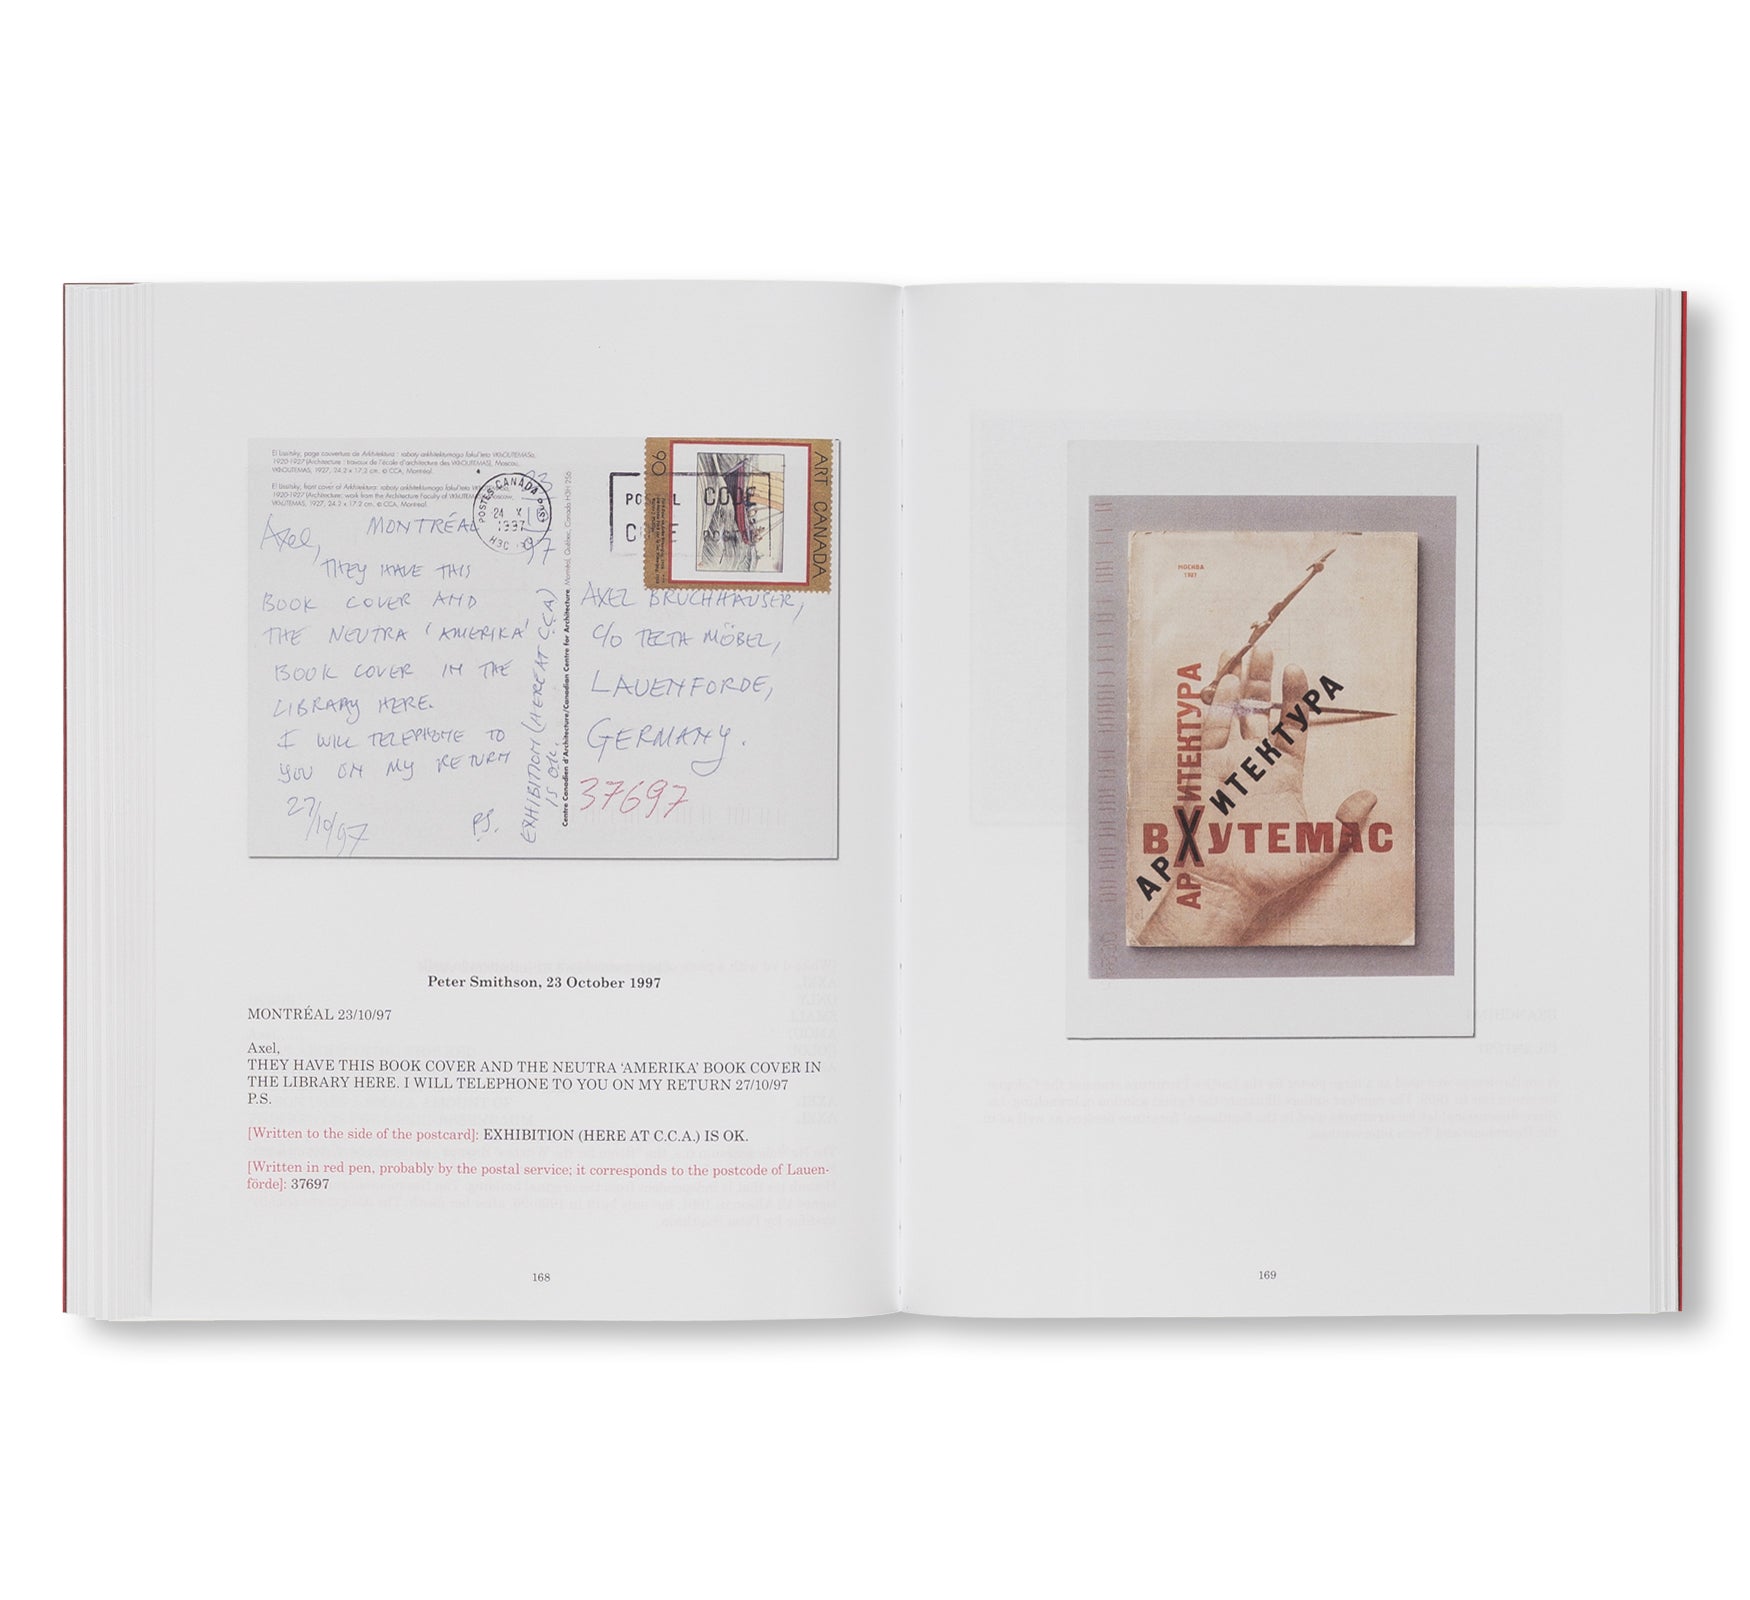 El Lissitzky, page couverture de Arkhitektura : raboty arkhitekturnogo fakul'teta VKhOUTEMASa,
1920-1927 (Architecture : travaux de l'école d'architecture des VKhOUTEMAS), Moscou,
VKhOUTEMAS, 1927, 24.2 x 17.2 cm. © CCA, Montréal.
El Lissitzky, front cover of Arkhitektura: raboty arkhitekturnogo fakul'teta
1920-1927 (Architecture: work from the Architecture Faculty of Moscow,
VKhOUTEMAS, 1927, 24.2 x 17.2 cm. © CCA, Montréal.
POSTES CANADA POST
24 X
1997
H3C
CODE
ART CANADA
90
Axel, MONTRÉAL
97
THEY HAVE THIS
BOOK COVER AND
THE NEUTRA 'AMERIKA'
BOOK COVER IN THE
LIBRARY HERE.
I WILL TELEPHONE TO
YOU ON MY RETURN
27/10/97
P.S.
EXHIBITION (HERE AT C.C.A)
IS OK.
Centre Canadien d'Architecture/Canadian Centre for Architecture, Montréal, Québec, Canada H3H 2S6
AXEL BRUCHHAUSER,
C/O TECTA MÖBEL,
LAUENFORDE,
GERMANY.
37697
Peter Smithson, 23 October 1997
MONTRÉAL 23/10/97
Axel,
THEY HAVE THIS BOOK COVER AND THE NEUTRA ‘AMERIKA’ BOOK COVER IN
THE LIBRARY HERE. I WILL TELEPHONE TO YOU ON MY RETURN 27/10/97
P.S.
[Written to the side of the postcard]: EXHIBITION (HERE AT C.C.A.) IS OK.
[Written in red pen, probably by the postal service; it corresponds to the postcode of Lauen-
förde]: 37697
168
МОСКВА
1927
АРХИТЕКТУРА
АРХИТЕКТУРА
ВХУТЕМАС
169